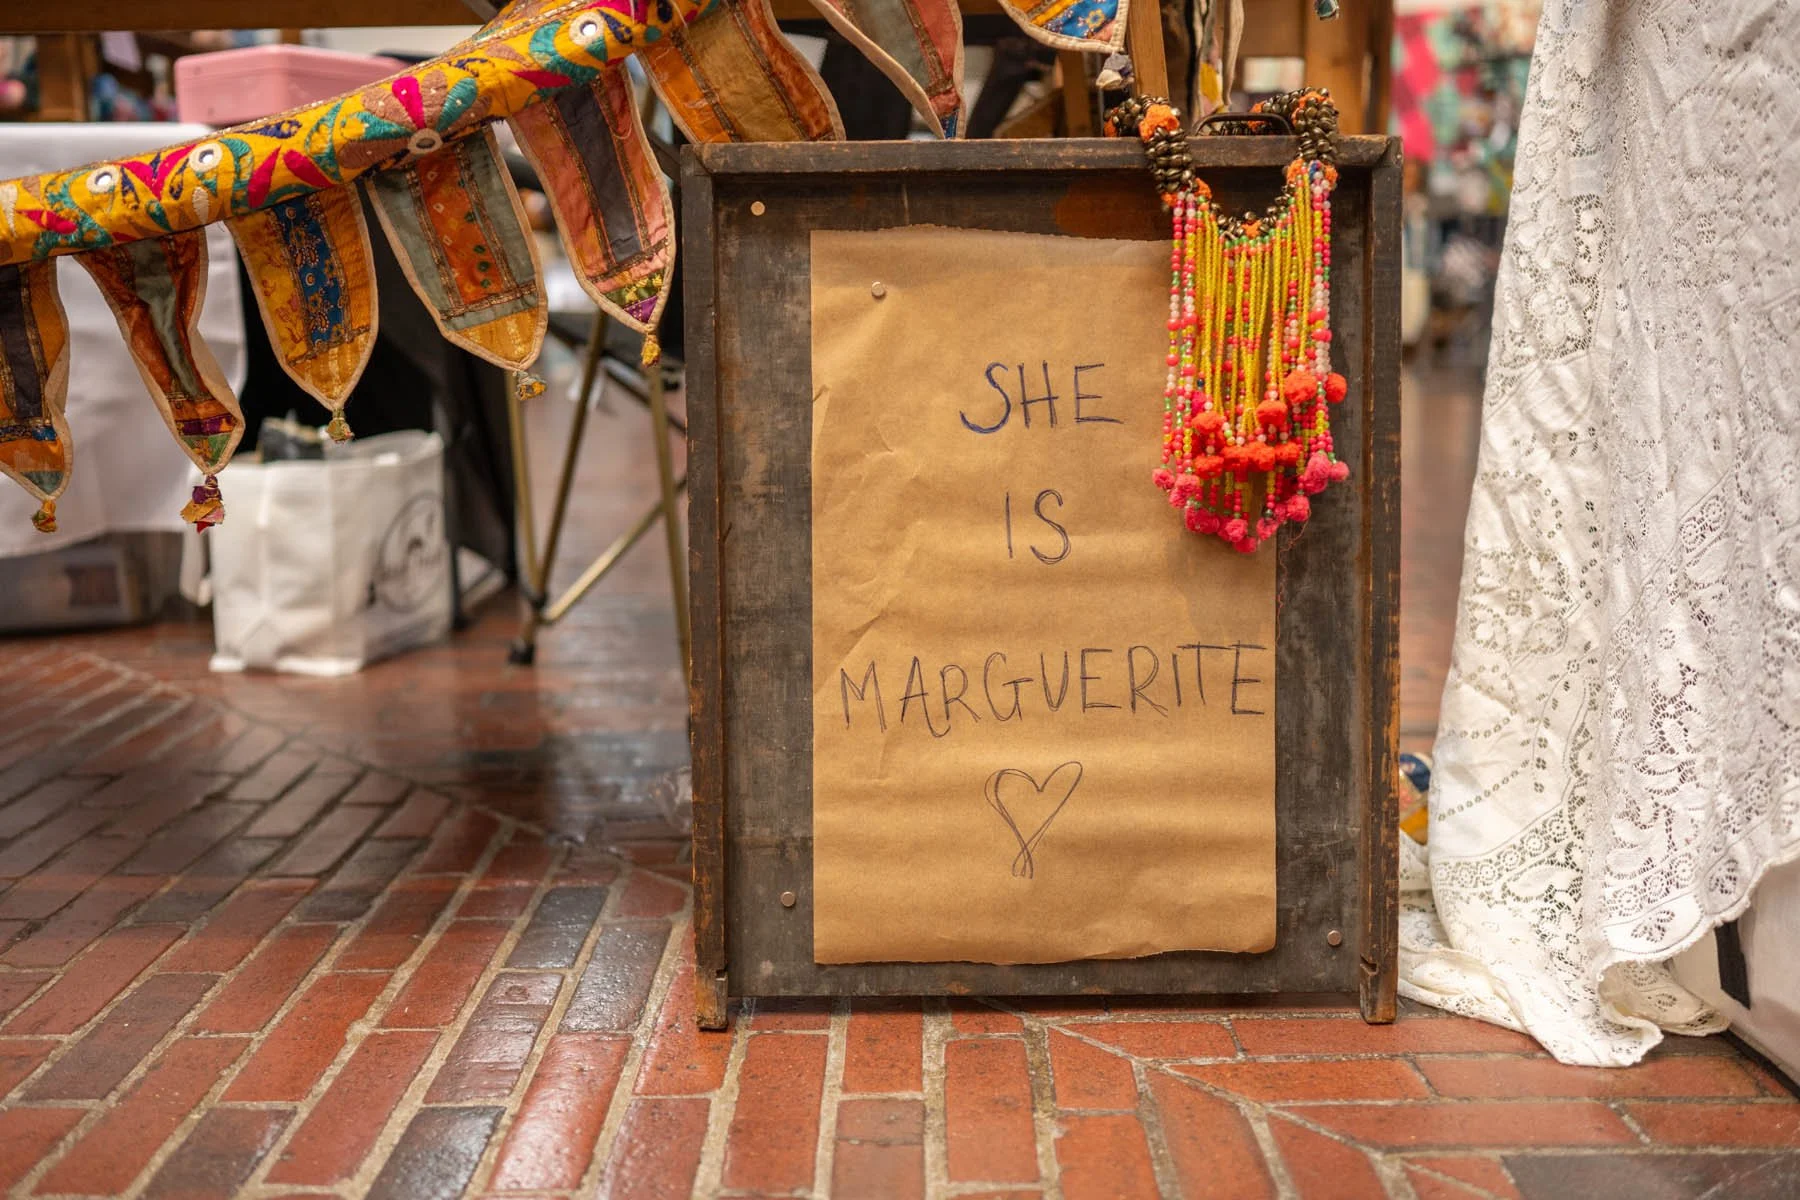 SHE
IS
MARGUERITE